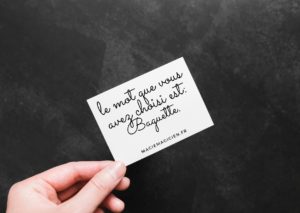 le mot que vous
avez choisi est:
Baguette.
MACIEMAGICIEN.FR